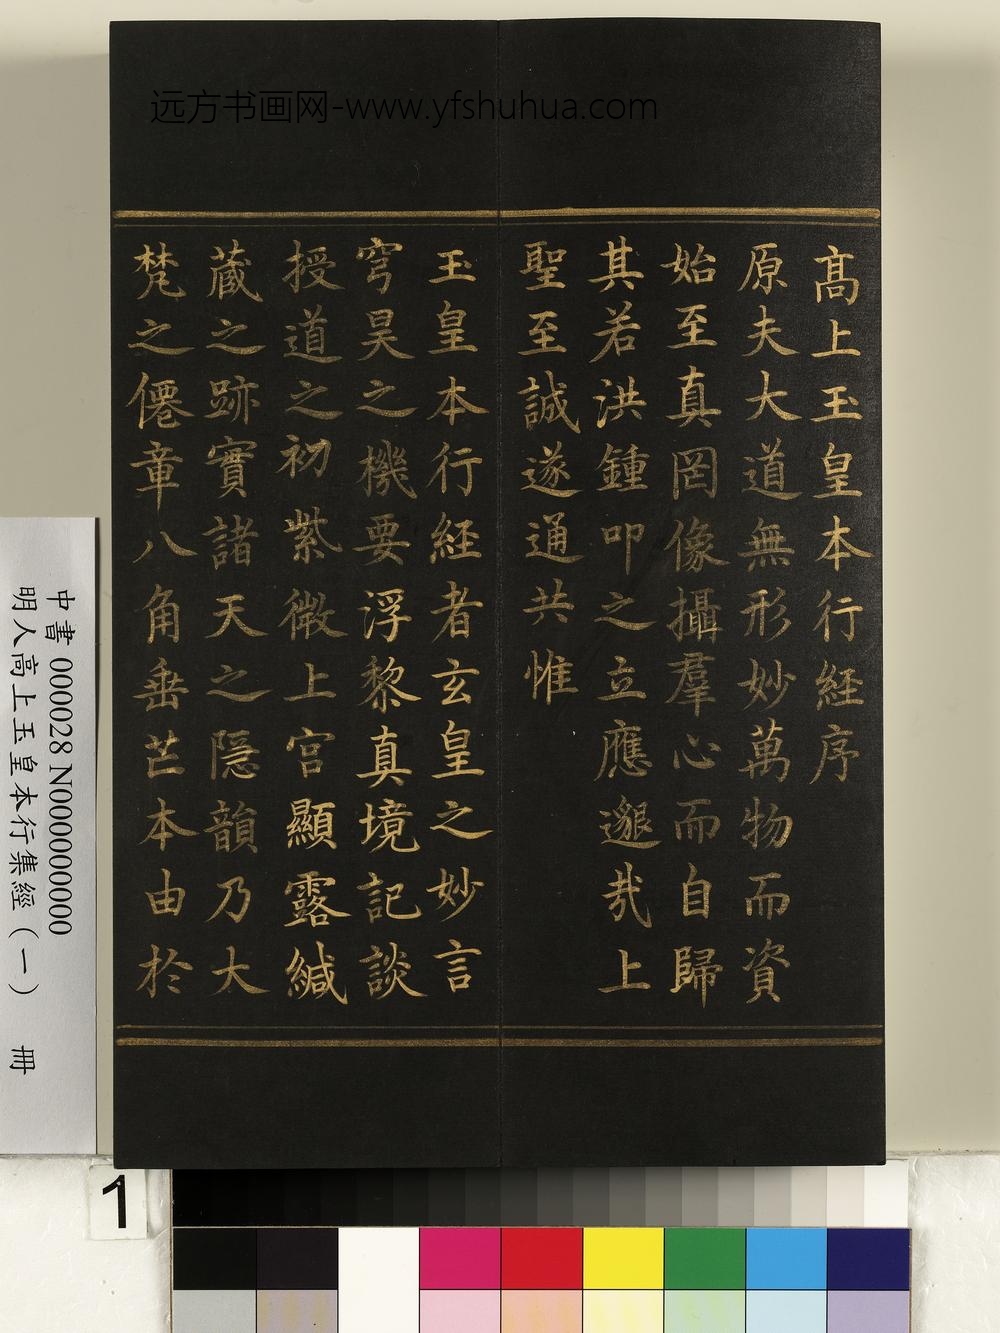 远方书画网-www.yfshuhua.com
髙上玉皇本行経序
原夫大道無形妙萬物而資
始至真罔像攝羣心而自歸
其若洪鍾叩之立應邈哉上
聖至誠遂通共惟
玉皇本行経者玄皇之妙言
穹昊之機要浮黎真境記談
授道之初紫微上宮顯露緘
蔵之跡實諸天之隠韻乃大
梵之僊章八角垂芒本由於
中書 000028 N000000000
明人高上玉皇本行集經（一） 冊
1